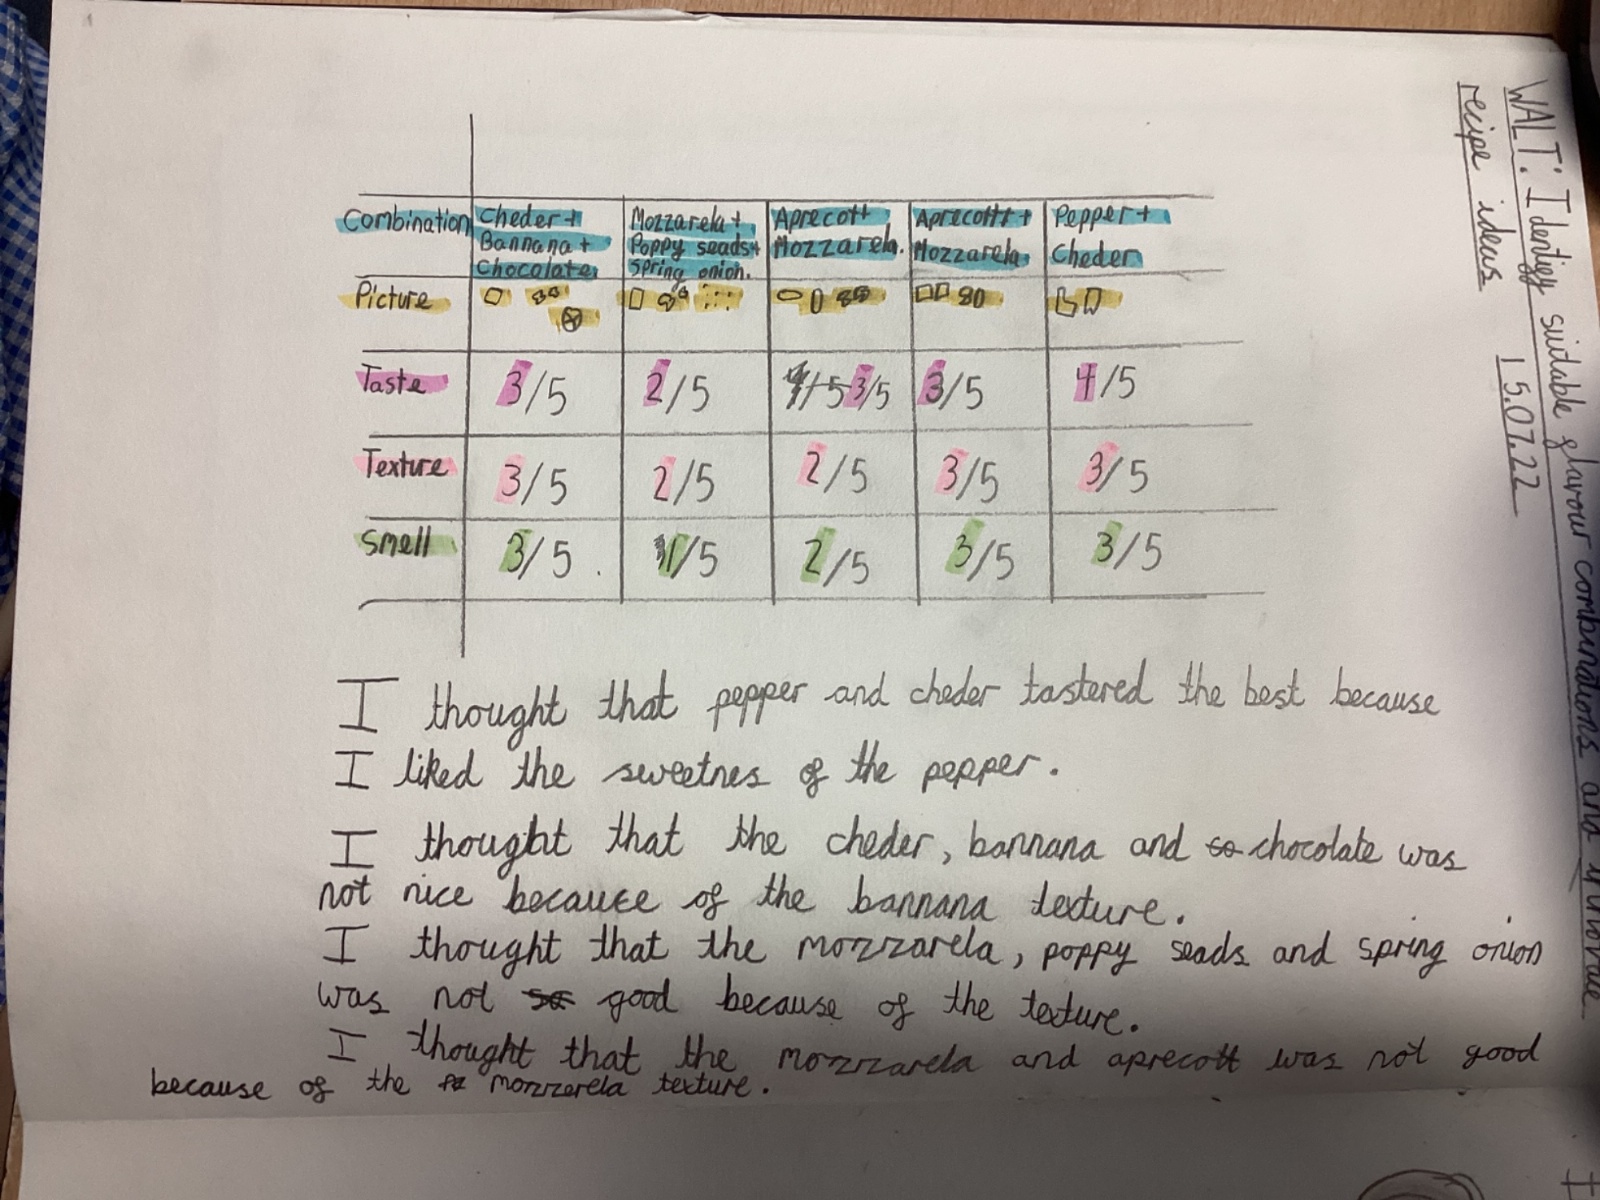 WALT: Identify suitable flavour combinations and innovate
recipe ideas
15.07.22
Combination
Cheder +
Bannana +
Chocolate.
Mozzarela +
Poppy seads+
spring onion.
Aprecott
Mozzarela.
Aprecott +
Mozzarela.
Pepper +
Cheder
Picture
Taste 3/5 2/5 4/5 3/5 3/5 4/5
Texture 3/5 2/5 2/5 3/5 3/5
Smell 3/5 1/5 2/5 3/5 3/5
I thought that pepper and cheder tastered the best because
I liked the sweetnes of the pepper.
I thought that the cheder, bannana and so chocolate was
not nice because of the bannana texture.
I thought that the mozzarela, poppy seads and spring onion
was not so good because of the texture.
I thought that the mozzarela and aprecott was not good
because of the mozzerela texture.
I